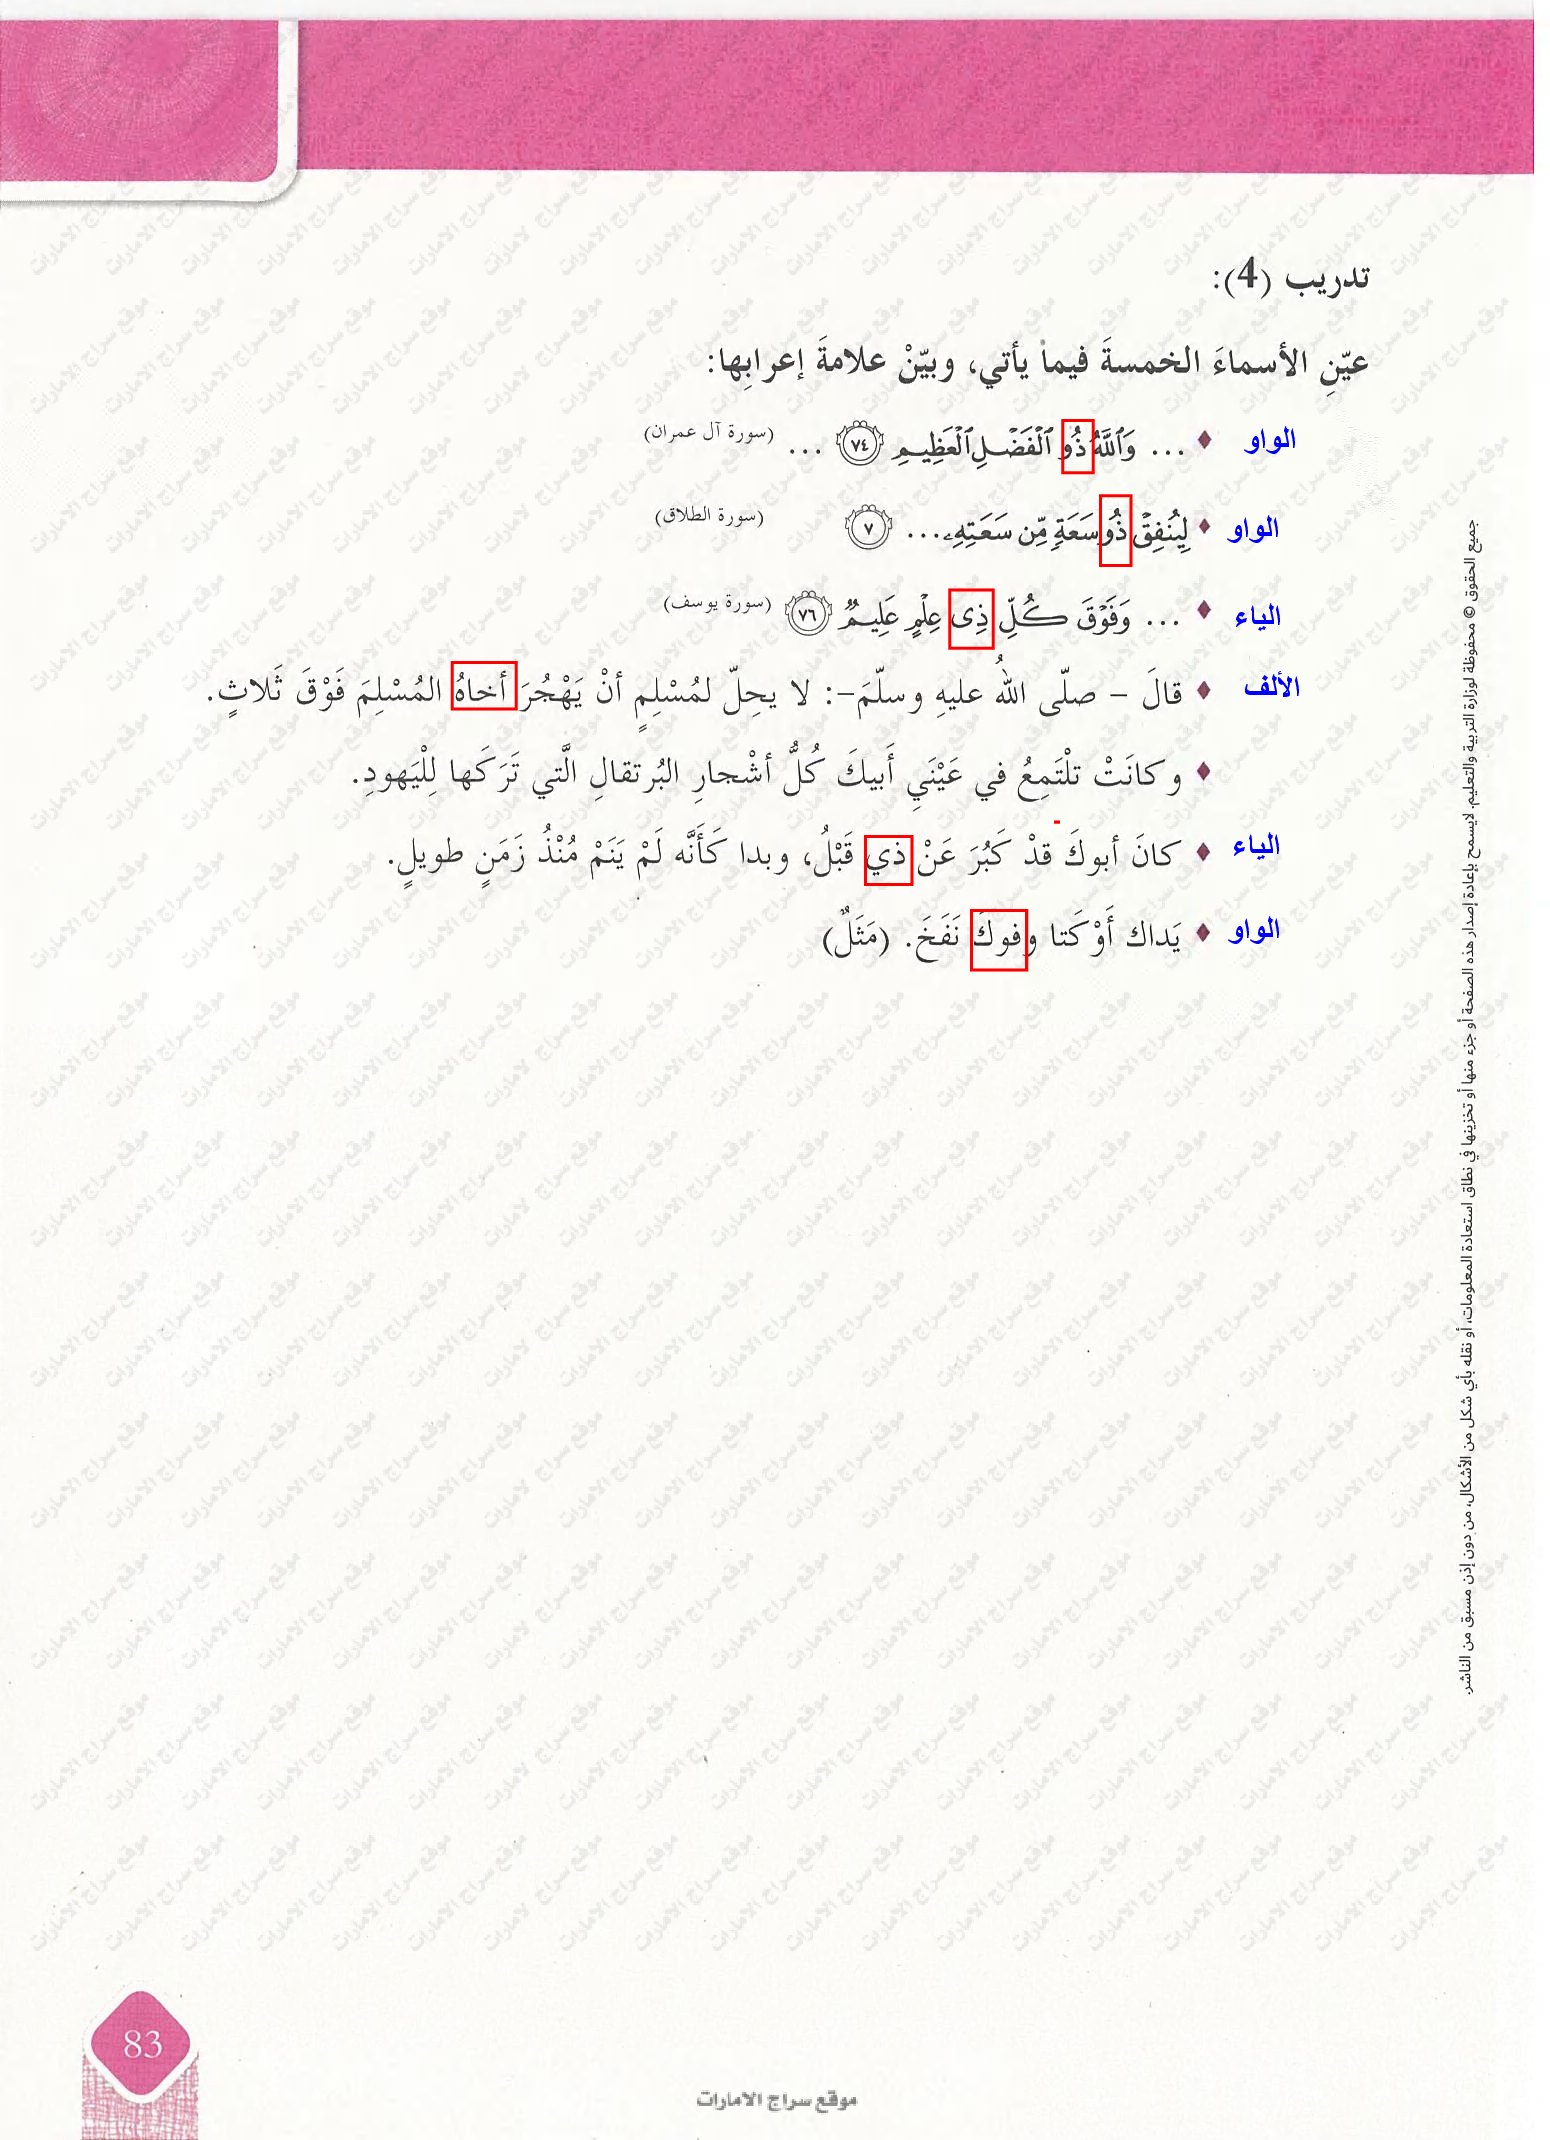 تدريب (4):
عيّنِ الأسماءَ الخمسةَ فيما يأتي، وبيّنْ علامةَ إعرابِها:
الواو ♦ ... وَٱللَّهُ ذُو ٱلْفَضْلِ ٱلْعَظِيمِ ﴿٧٤﴾ ... (سورة آل عمران)
الواو ♦ لِيُنفِقْ ذُو سَعَةٍ مِّن سَعَتِهِۦ... ﴿٧﴾ (سورة الطلاق)
الياء ♦ ... وَفَوْقَ كُلِّ ذِى عِلْمٍ عَلِيمٌ ﴿٧٦﴾ (سورة يوسف)
الألف ♦ قالَ - صلّى اللهُ عليهِ وسلّمَ-: لا يحِلّ لمُسْلِمٍ أنْ يَهْجُرَ أخاهُ المُسْلِمَ فَوْقَ ثَلاثٍ.
♦ وكانَتْ تلْتَمِعُ في عَيْنَيِ أَبيكَ كُلُّ أشْجارِ البُرتقالِ الَّتي تَرَكَها لِلْيَهودِ.
الياء ♦ كانَ أبوكَ قدْ كَبُرَ عَنْ ذي قَبْلُ، وبدا كَأَنَّه لَمْ يَنَمْ مُنْذُ زَمَنٍ طويلٍ.
الواو ♦ يَداك أَوْكَتا وفوكَ نَفَخَ. (مَثَلٌ)
جميع الحقوق © محفوظة لوزارة التربية والتعليم. لايسمح بإعادة إصدار هذه الصفحة أو جزء منها أو تخزينها في نطاق استعادة المعلومات، أو نقله بأي شكل من الأشكال، من دون إذن مسبق من الناشر.
83
موقع سراج الامارات